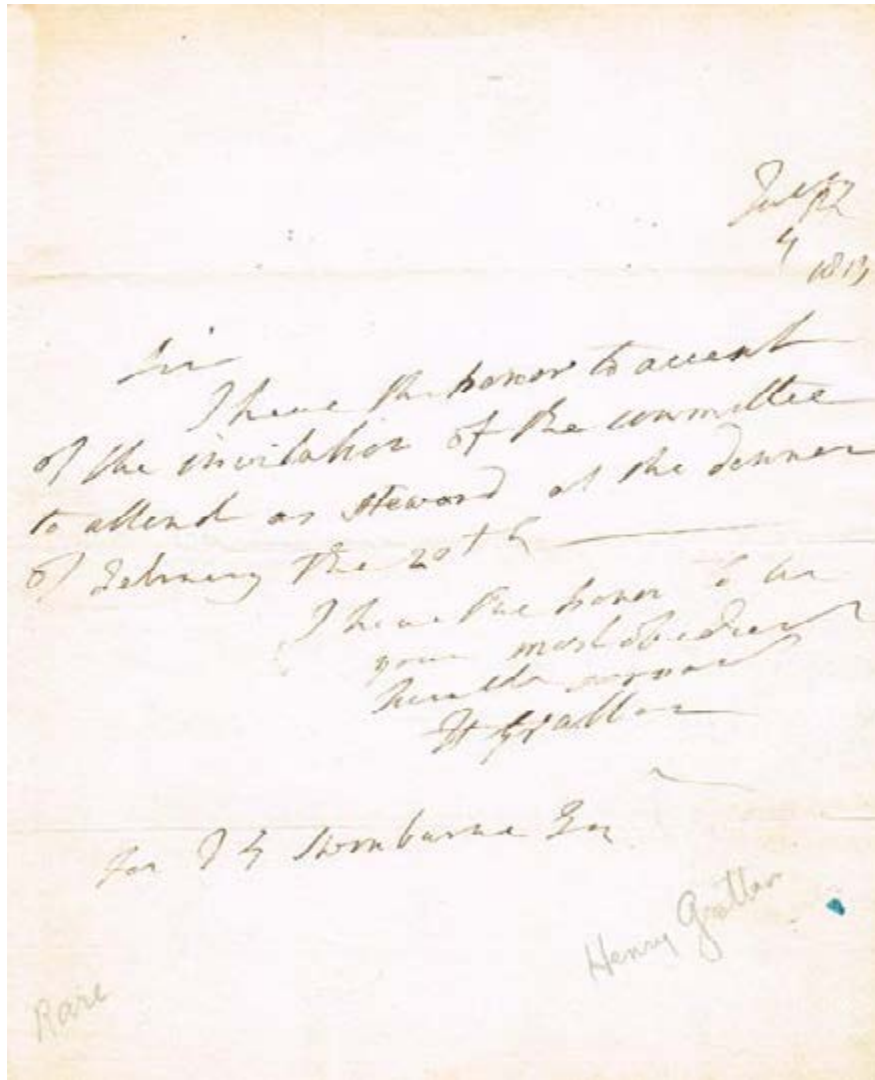 4
Sir
I have the honor to accept
of the invitation of the committee
to attend as Steward at the dinner
of February the 20th
I have the honor to be
your most obedient
humble servant
H Grattan
for J G Swinburne Esq
Henry Grattan
Rare